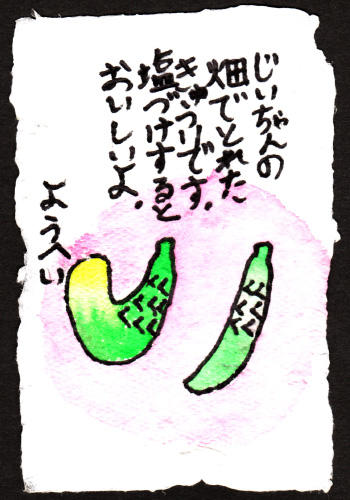 じいちゃんの
畑でとれた
きゅうりです。
塩づけすると
おいしいよ。
ようへい